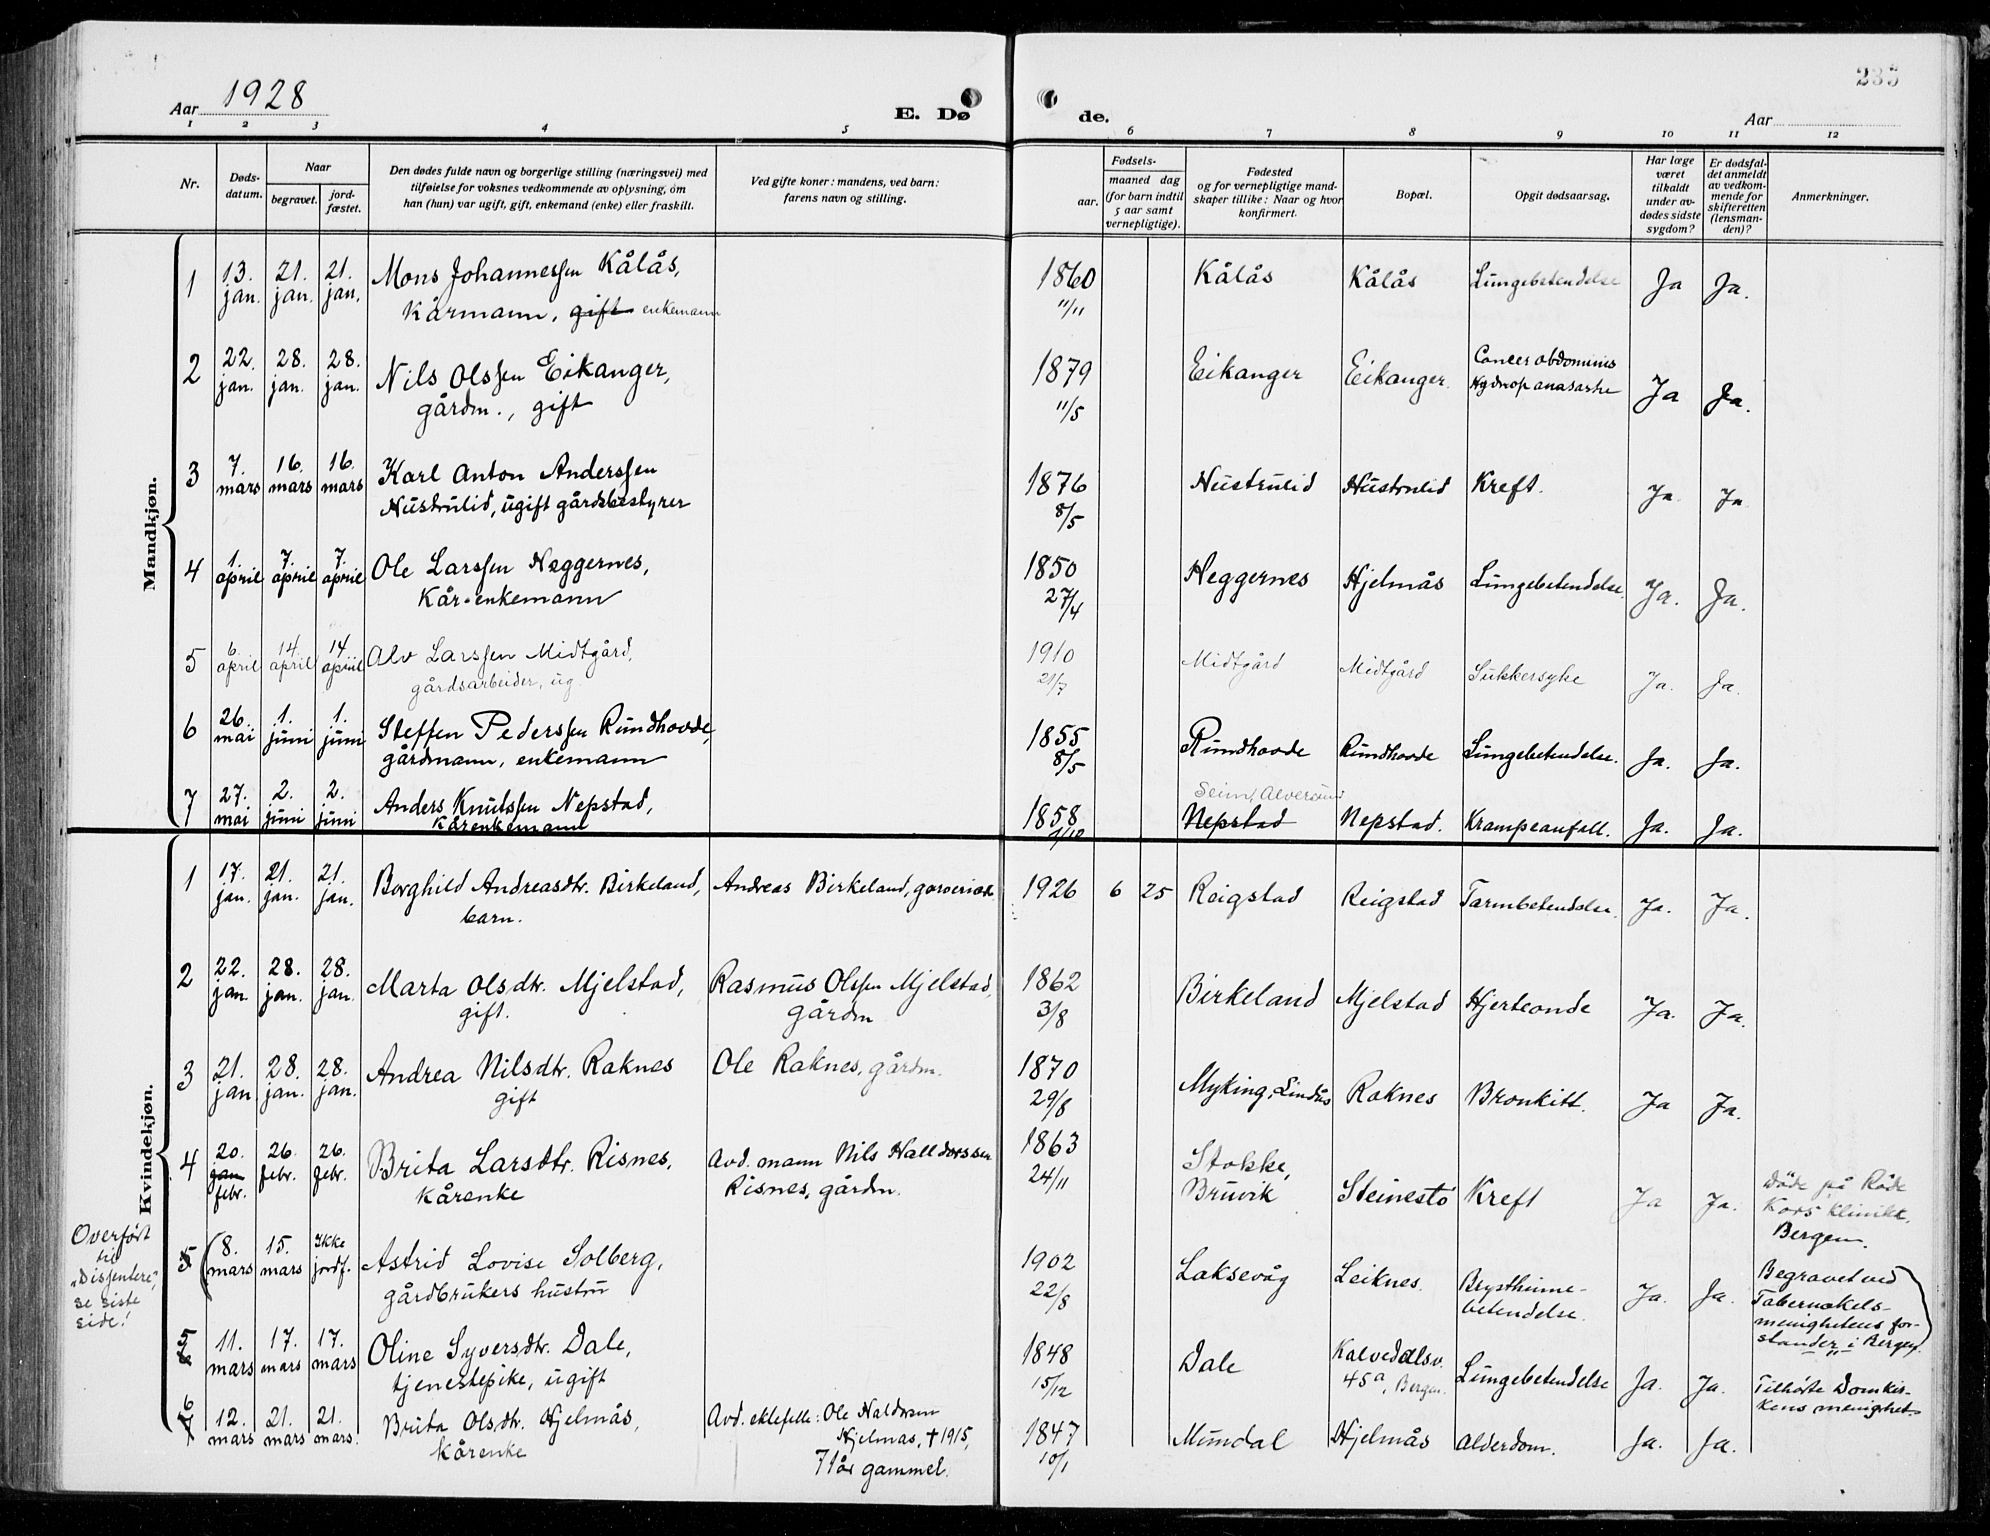 235
Aar 1928
E. Dø
de.
Aar
1 2 3 4 5 6 7 8 9 10 11 12
Nr.
Døds-
datum.
Naar
begravet.
jord-
fæstet.
Den dødes fulde navn og borgerlige stilling (næringsvei) med
tilføielse for voksnes vedkommende av oplysning, om
han (hun) var ugift, gift, enkemand (enke) eller fraskilt.
Ved gifte koner: mandens, ved barn:
farens navn og stilling.
Fødsels-
aar.
maaned dag
(for barn indtil
5 aar samt
vernepligtige).
Fødested
og for vernepligtige mand-
skaper tillike: Naar og hvor
konfirmert.
Bopæl.
Opgit dødsaarsag.
Har læge
været
tilkaldt
under av-
dødes sidste
sygdom?
Er dødsfal-
det anmeldt
av vedkom-
mende for
skifteretten
(lensman-
den)?
Anmerkninger.
Mandkjøn.
1 13. jan. 21. jan. 21. jan. Mons Johannessen Kålås, 1860 Kålås Kålås Lungebetendelse Ja Ja.
Kårmann, gift enkemann 11/11
2 22. jan. 28. jan. 28. jan. Nils Olssen Eikanger, 1879 Eikanger Eikanger. Cancer abdominis Ja Ja.
gårdm., gift 11/5 Hydrop anasarke
3 7. mars 16. mars 16. mars Karl Anton Anderssen 1876 Hustrulid Hustrulid Kreft. Ja. Ja
Hustrulid, ugift gårdsbestyrer 8/5
4 1. april 7. april 7. april Ole Larssen Heggernes, 1850 Heggernes Hjelmås Lungebetendelse. Ja. Ja.
Kår-enkemann 27/4
5 6. april 14. april 14. april Alv Larssen Midtgård, 1910 Midtgård Midtgård Sukkersyke Ja. Ja.
gårdsarbeider, ug. 21/7
6 26. mai 1. juni 1. juni Steffen Pederssen Rundhovde, 1855 Rundhovde Rundhovde Lungebetendelse. Ja. Ja.
gårdmann, enkemann 8/5
Seim, Alversund
7 27. mai 2. juni 2. juni Anders Knutssen Nepstad, 1858 Nepstad Nepstad. Krampeanfall. Ja. Ja.
Kårenkemann
Kvindekjøn.
1 17. jan. 21. jan. 21. jan. Borghild Andreasdtr. Birkeland, Andreas Birkeland, 1926 6 25 Reigstad Reigstad Tarmbetendelse. Ja. Ja.
barn.
2 22. jan. 28. jan. 28. jan. Marta Olsdtr. Mjelstad, Rasmus Olssen Mjelstad, 1862 Birkeland Mjelstad Hjerteonde Ja. Ja.
gift. gårdm 3/8
3 21. jan 28. jan. 28. jan. Andrea Nilsdtr. Raknes Ole Raknes, gårdm. 1870 Myking, Lindås Raknes Bronkitt. Ja Ja.
gift 29/8
4 20. jan febr. 26. febr. 26. febr. Brita Larsdtr. Risnes, Avd. mann Nils Halldorssen 1863 Stokke, Steinestø Kreft Ja Ja. Døde på Røde
Kårenke Risnes, gårdm. 24/11 Bruvik Kors klinikk,
Bergen.
Overført
til
"Dissentere",
se siste
side!
5 (8. mars 15. mars Ikke jordf. Astrid Lovise Solberg, 1902 Laksevåg Leiknes. Brysthinne- Ja. Ja. Begravet ved
gårdbrukers hustru 22/8 betendelse. Tabernakels-
menighetens for-
stander i Bergen)
5 6 11. mars 17. mars 17. mars Oline Syversdtr. Dale, 1848 Dale Kalvedalsv. Lungebetendelse Ja. Ja. Tilhørte Domkir-
tjenestepike, ugift 15/12 45a, Bergen. kens menighet.
6 7 12. mars 21. mars 21. mars. Brita Olsdtr. Hjelmås, Avd. ektefelle: Ole Haldorsen 1847 Mundal Hjelmås Alderdom. Ja. Ja.
Kårenke Hjelmås, † 1915, 10/1
71 år gammel.